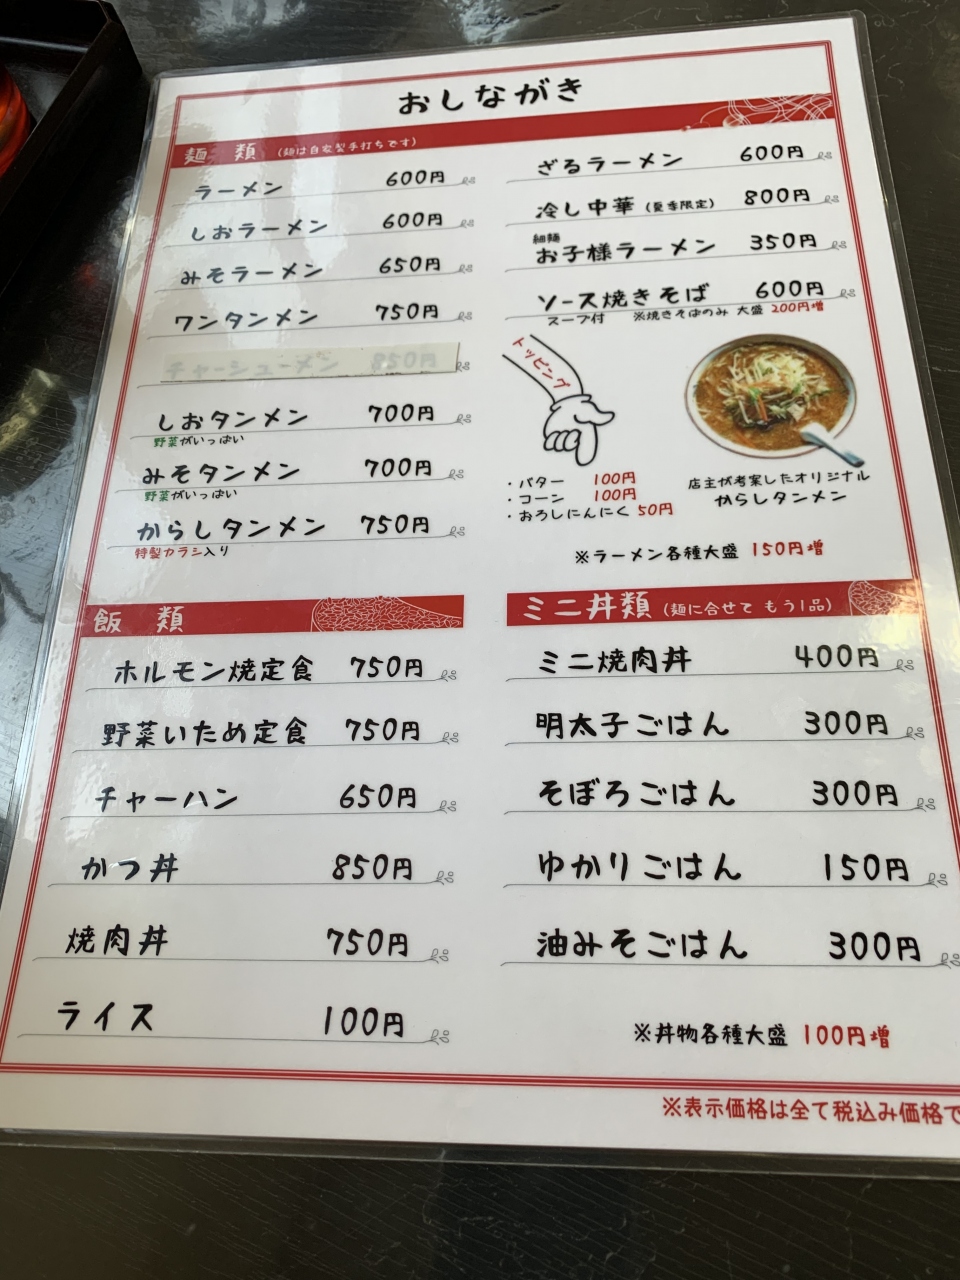 おしながき
麺類 (麺は自家製手打ちです)
ラーメン 600円
しおラーメン 600円
みそラーメン 650円
ワンタンメン 750円
チャーシューメン 850円
しおタンメン 700円
野菜がいっぱい
みそタンメン 700円
野菜がいっぱい
からしタンメン 750円
特製カラシ入り
ざるラーメン 600円
冷し中華 (夏季限定) 800円
細麺
お子様ラーメン 350円
ソース焼きそば 600円
スープ付 ※焼きそばのみ 大盛 200円増
トッピング
・バター 100円
・コーン 100円
・おろしにんにく 50円
店主が考案したオリジナル
からしタンメン
※ラーメン各種大盛 150円増
飯類
ホルモン焼定食 750円
野菜いため定食 750円
チャーハン 650円
かつ丼 850円
焼肉丼 750円
ライス 100円
ミニ丼類 (麺に合せて もう1品)
ミニ焼肉丼 400円
明太子ごはん 300円
そぼろごはん 300円
ゆかりごはん 150円
油みそごはん 300円
※丼物各種大盛 100円増
※表示価格は全て税込み価格で